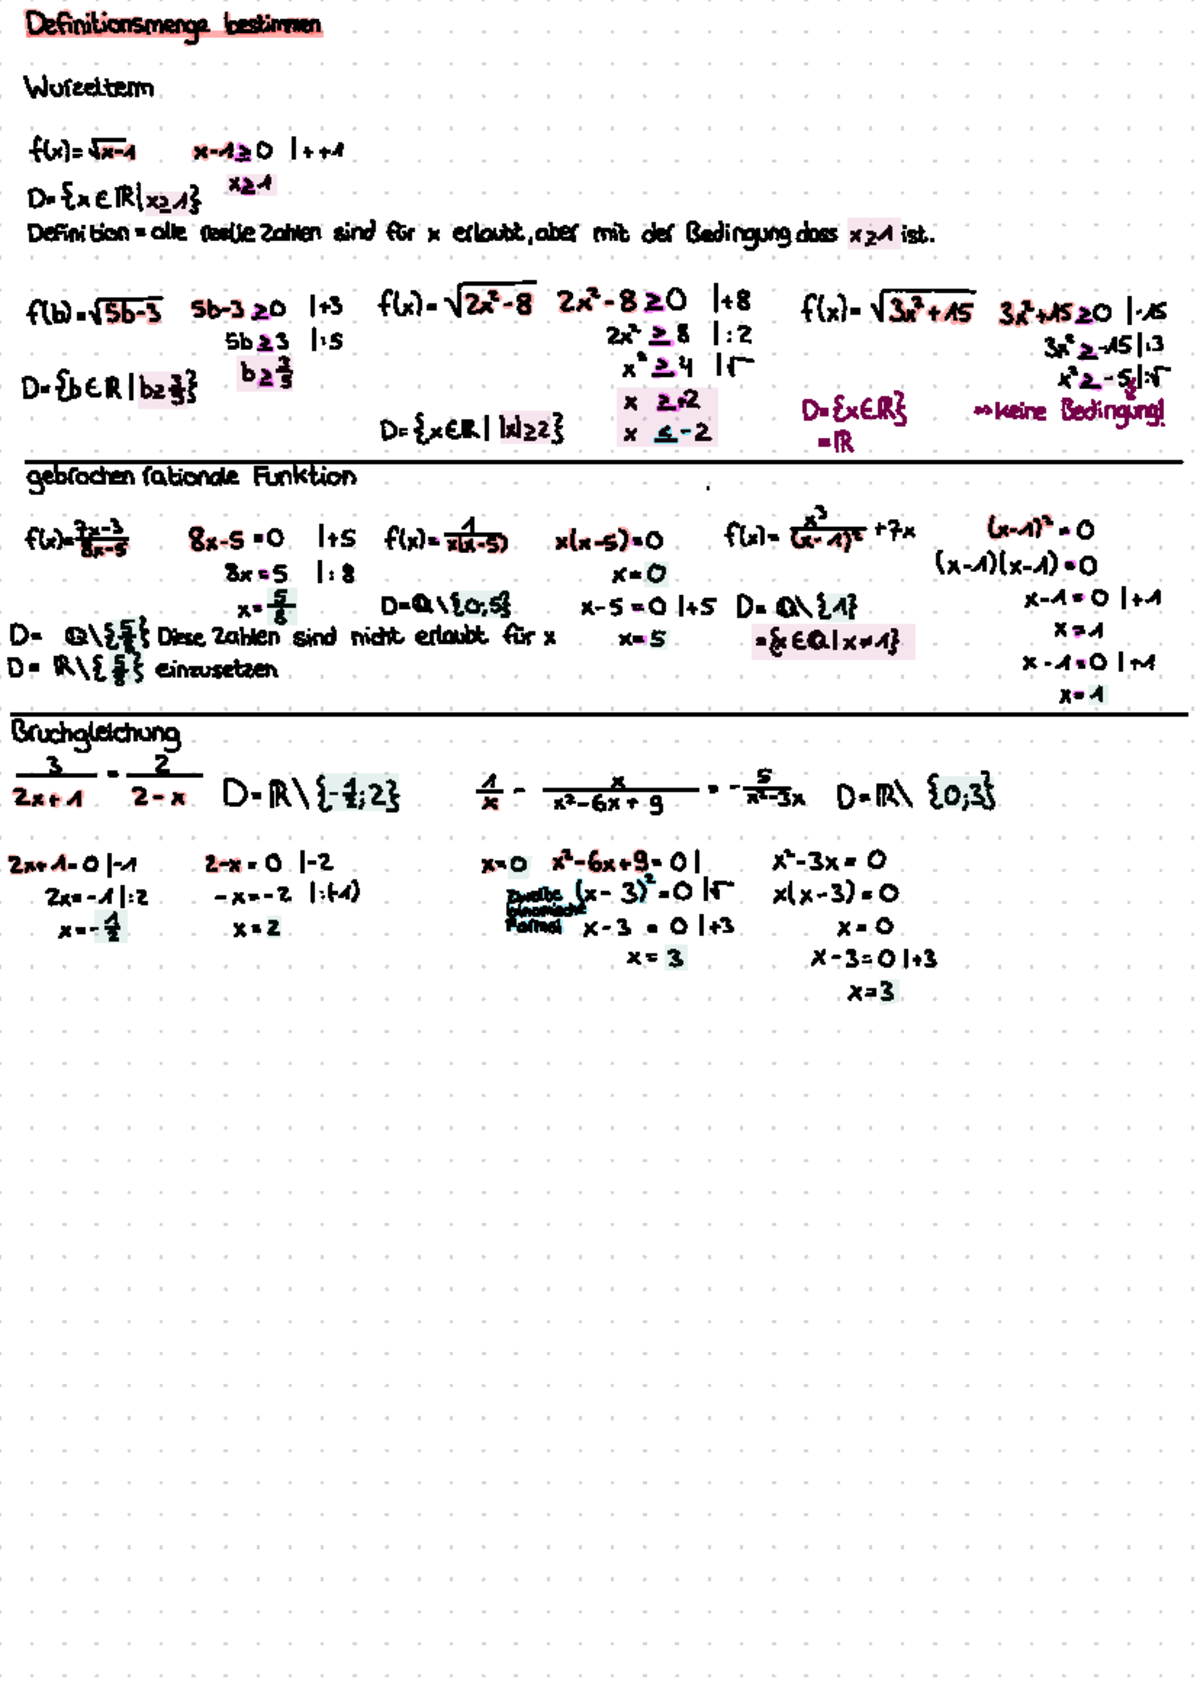 Definitionsmenge bestimmen
Wurzelterm
f(x)=√x-1 x-1≥0 |++1
x≥1
D={x∈ℝ|x≥1}
Definition = alle reelle Zahlen sind für x erlaubt, aber mit der Bedingung dass x≥1 ist.
f(b)=√5b-3 5b-3≥0 |+3
5b≥3 |:5
b≥3/5
D={b∈ℝ|b≥3/5}
f(x)=√2x²-8 2x²-8≥0 |+8
2x²≥8 |:2
x²≥4 |√
x ≥+2
x ≤-2
D={x∈ℝ| |x|≥2}
f(x)=√3x²+15 3x²+15≥0 |-15
3x²≥-15|:3
x²≥-5|√
D={x∈ℝ} ⇒ keine Bedingung!
=ℝ
gebrochen rationale Funktion
f(x)=7x-3/8x-5 8x-5=0 |+5
8x=5 |:8
x=5/8
D= ℚ\{5/8} Diese Zahlen sind nicht erlaubt für x
D= ℝ\{5/8} einzusetzen
f(x)=1/x(x-5) x(x-5)=0
x=0
D=ℚ\{0;5} x-5=0 |+5
x=5
f(x)= x³/(x-1)² +7x (x-1)²=0
(x-1)(x-1)=0
D= ℚ\{1} x-1=0 |+1
x=1
={x∈ℚ|x≠1}
x-1=0 |+1
x=1
Bruchgleichung
3/2x+1 = 2/2-x D=ℝ\{-1/2;2}
2x+1=0|-1 2-x=0 |-2
2x=-1|:2 -x=-2 |:(-1)
x=-1/2 x=2
1/x - x/x²-6x+9 = -5/x²-3x D=ℝ\ {0;3}
x=0 x²-6x+9=0| x²-3x=0
zweite binomische Formel (x-3)²=0|√ x(x-3)=0
x-3=0|+3 x=0
x=3 x-3=0|+3
x=3